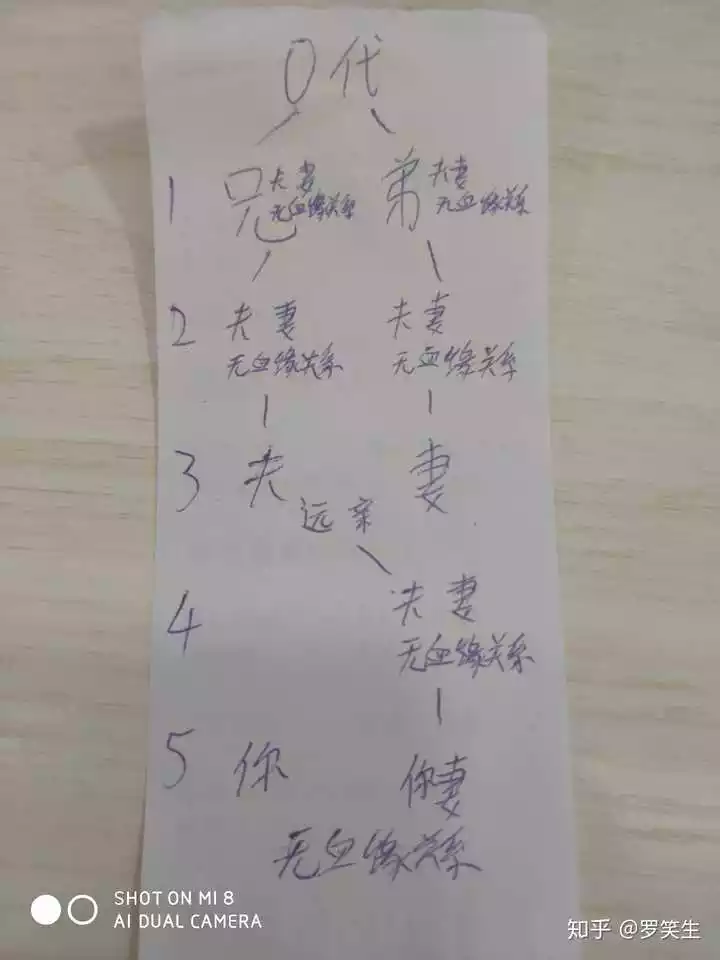 0代
1 兄 夫妻 弟 夫妻
无血缘关系 无血缘关系
2 夫妻 夫妻
无血缘关系 无血缘关系
3 夫 妻
远亲
4 夫妻
无血缘关系
5 你 你妻
无血缘关系
SHOT ON MI 8
AI DUAL CAMERA
知乎 @罗笑生